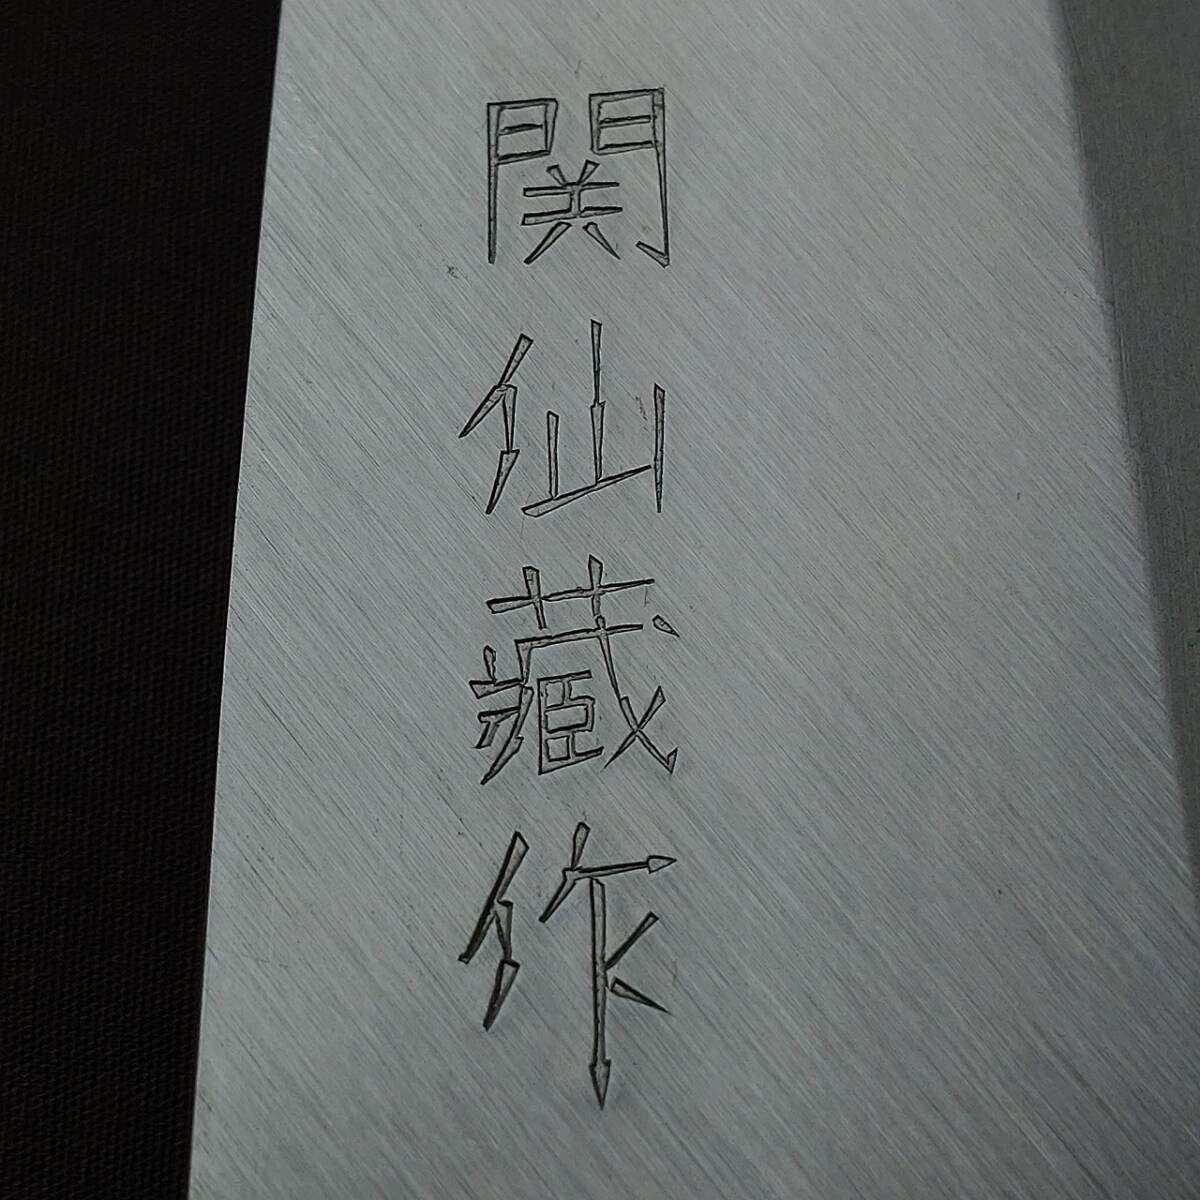 関仙藏作